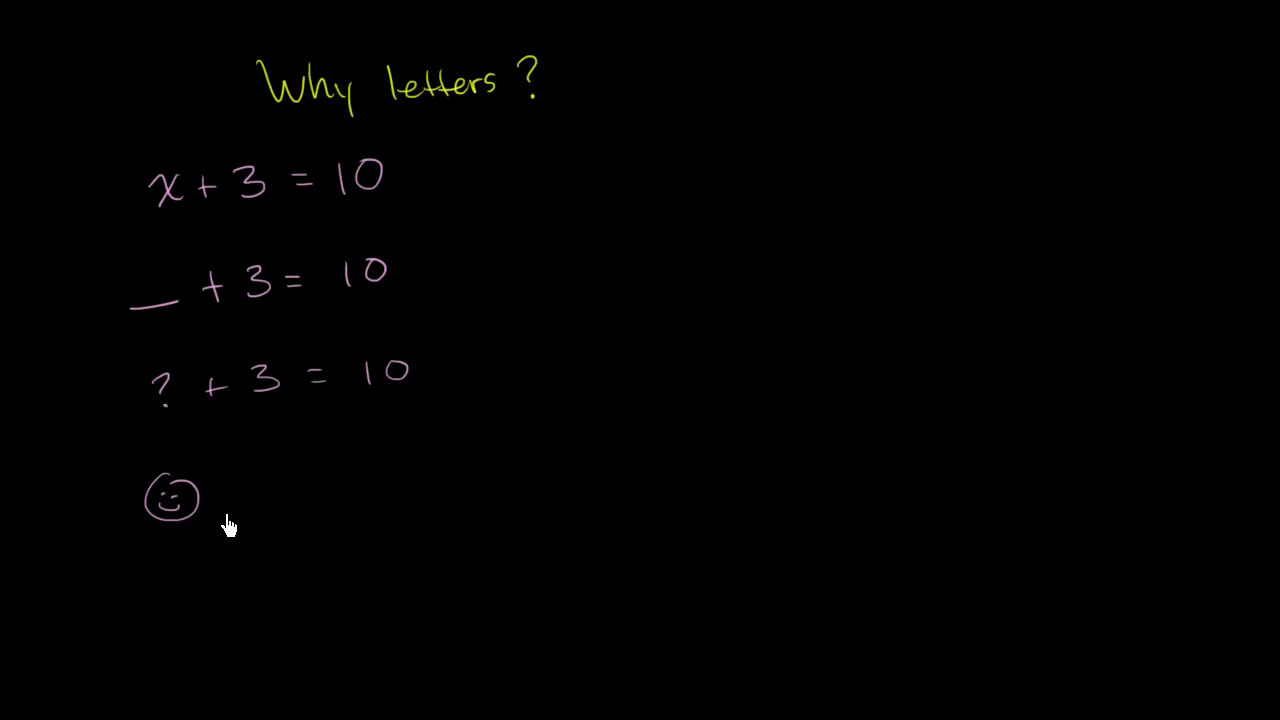 Why letters?
x + 3 = 10
_ + 3 = 10
? + 3 = 10